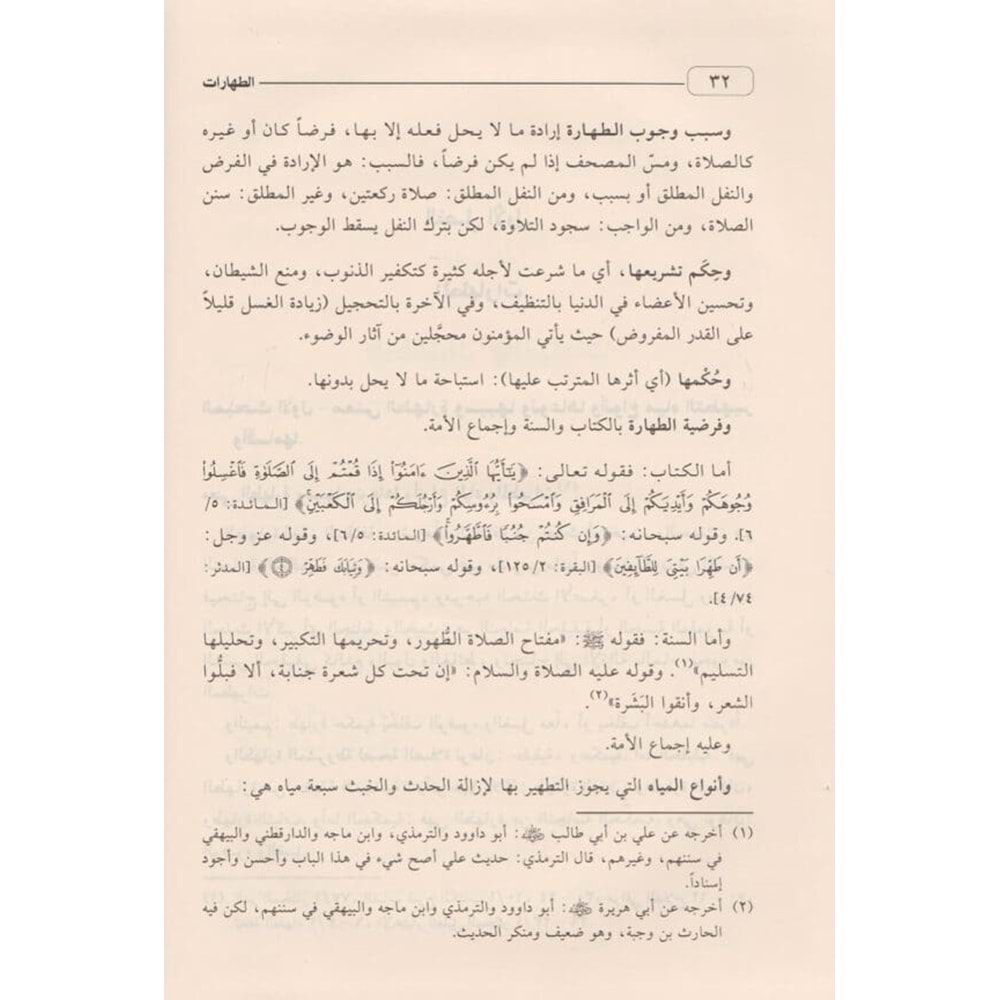 ٣٢ الطهارات
وسبب وجوب الطهارة إرادة ما لا يحل فعله إلا بها، فرضاً كان أو غيره
كالصلاة، ومسّ المصحف إذا لم يكن فرضاً، فالسبب: هو الإرادة في الفرض
والنفل المطلق أو بسبب، ومن النفل المطلق: صلاة ركعتين، وغير المطلق: سنن
الصلاة، ومن الواجب: سجود التلاوة، لكن بترك النفل يسقط الوجوب.
وحِكَم تشريعها، أي ما شرعت لأجله كثيرة كتكفير الذنوب، ومنع الشيطان،
وتحسين الأعضاء في الدنيا بالتنظيف، وفي الآخرة بالتحجيل (زيادة الغسل قليلاً
على القدر المفروض) حيث يأتي المؤمنون محجَّلين من آثار الوضوء.
وحُكْمها (أي أثرها المترتب عليها): استباحة ما لا يحل بدونها.
وفرضية الطهارة بالكتاب والسنة وإجماع الأمة.
أما الكتاب: فقوله تعالى: ﴿يَٰٓأَيُّهَا ٱلَّذِينَ ءَامَنُوٓا۟ إِذَا قُمْتُمْ إِلَى ٱلصَّلَوٰةِ فَٱغْسِلُوا۟
وُجُوهَكُمْ وَأَيْدِيَكُمْ إِلَى ٱلْمَرَافِقِ وَٱمْسَحُوا۟ بِرُءُوسِكُمْ وَأَرْجُلَكُمْ إِلَى ٱلْكَعْبَيْنِ﴾ [المائدة: ٥/
٦]. وقوله سبحانه: ﴿وَإِن كُنتُمْ جُنُبًا فَٱطَّهَّرُوا۟﴾ [المائدة: ٦/٥]، وقوله عز وجل:
﴿أَن طَهِّرَا بَيْتِىَ لِلطَّآئِفِينَ﴾ [البقرة: ١٢٥/٢]، وقوله سبحانه: ﴿وَثِيَابَكَ فَطَهِّرْ ٤﴾ [المدثر:
٤/٧٤].
وأما السنة: فقوله ﷺ: «مفتاح الصلاة الطُّهور، وتحريمها التكبير، وتحليلها
التسليم»(١). وقوله عليه الصلاة والسلام: «إن تحت كل شعرة جنابة، ألا فبلُّوا
الشعر، وأنقوا البَشَرة»(٢).
وعليه إجماع الأمة.
وأنواع المياه التي يجوز التطهير بها لإزالة الحدث والخبث سبعة مياه هي:
(١) أخرجه عن علي بن أبي طالب رضي الله عنه: أبو داوود والترمذي، وابن ماجه والدارقطني والبيهقي
في سننهم، وغيرهم، قال الترمذي: حديث علي أصح شيء في هذا الباب وأحسن وأجود
إسناداً.
(٢) أخرجه عن أبي هريرة رضي الله عنه: أبو داوود والترمذي وابن ماجه والبيهقي في سننهم، لكن فيه
الحارث بن وجبة، وهو ضعيف ومنكر الحديث.